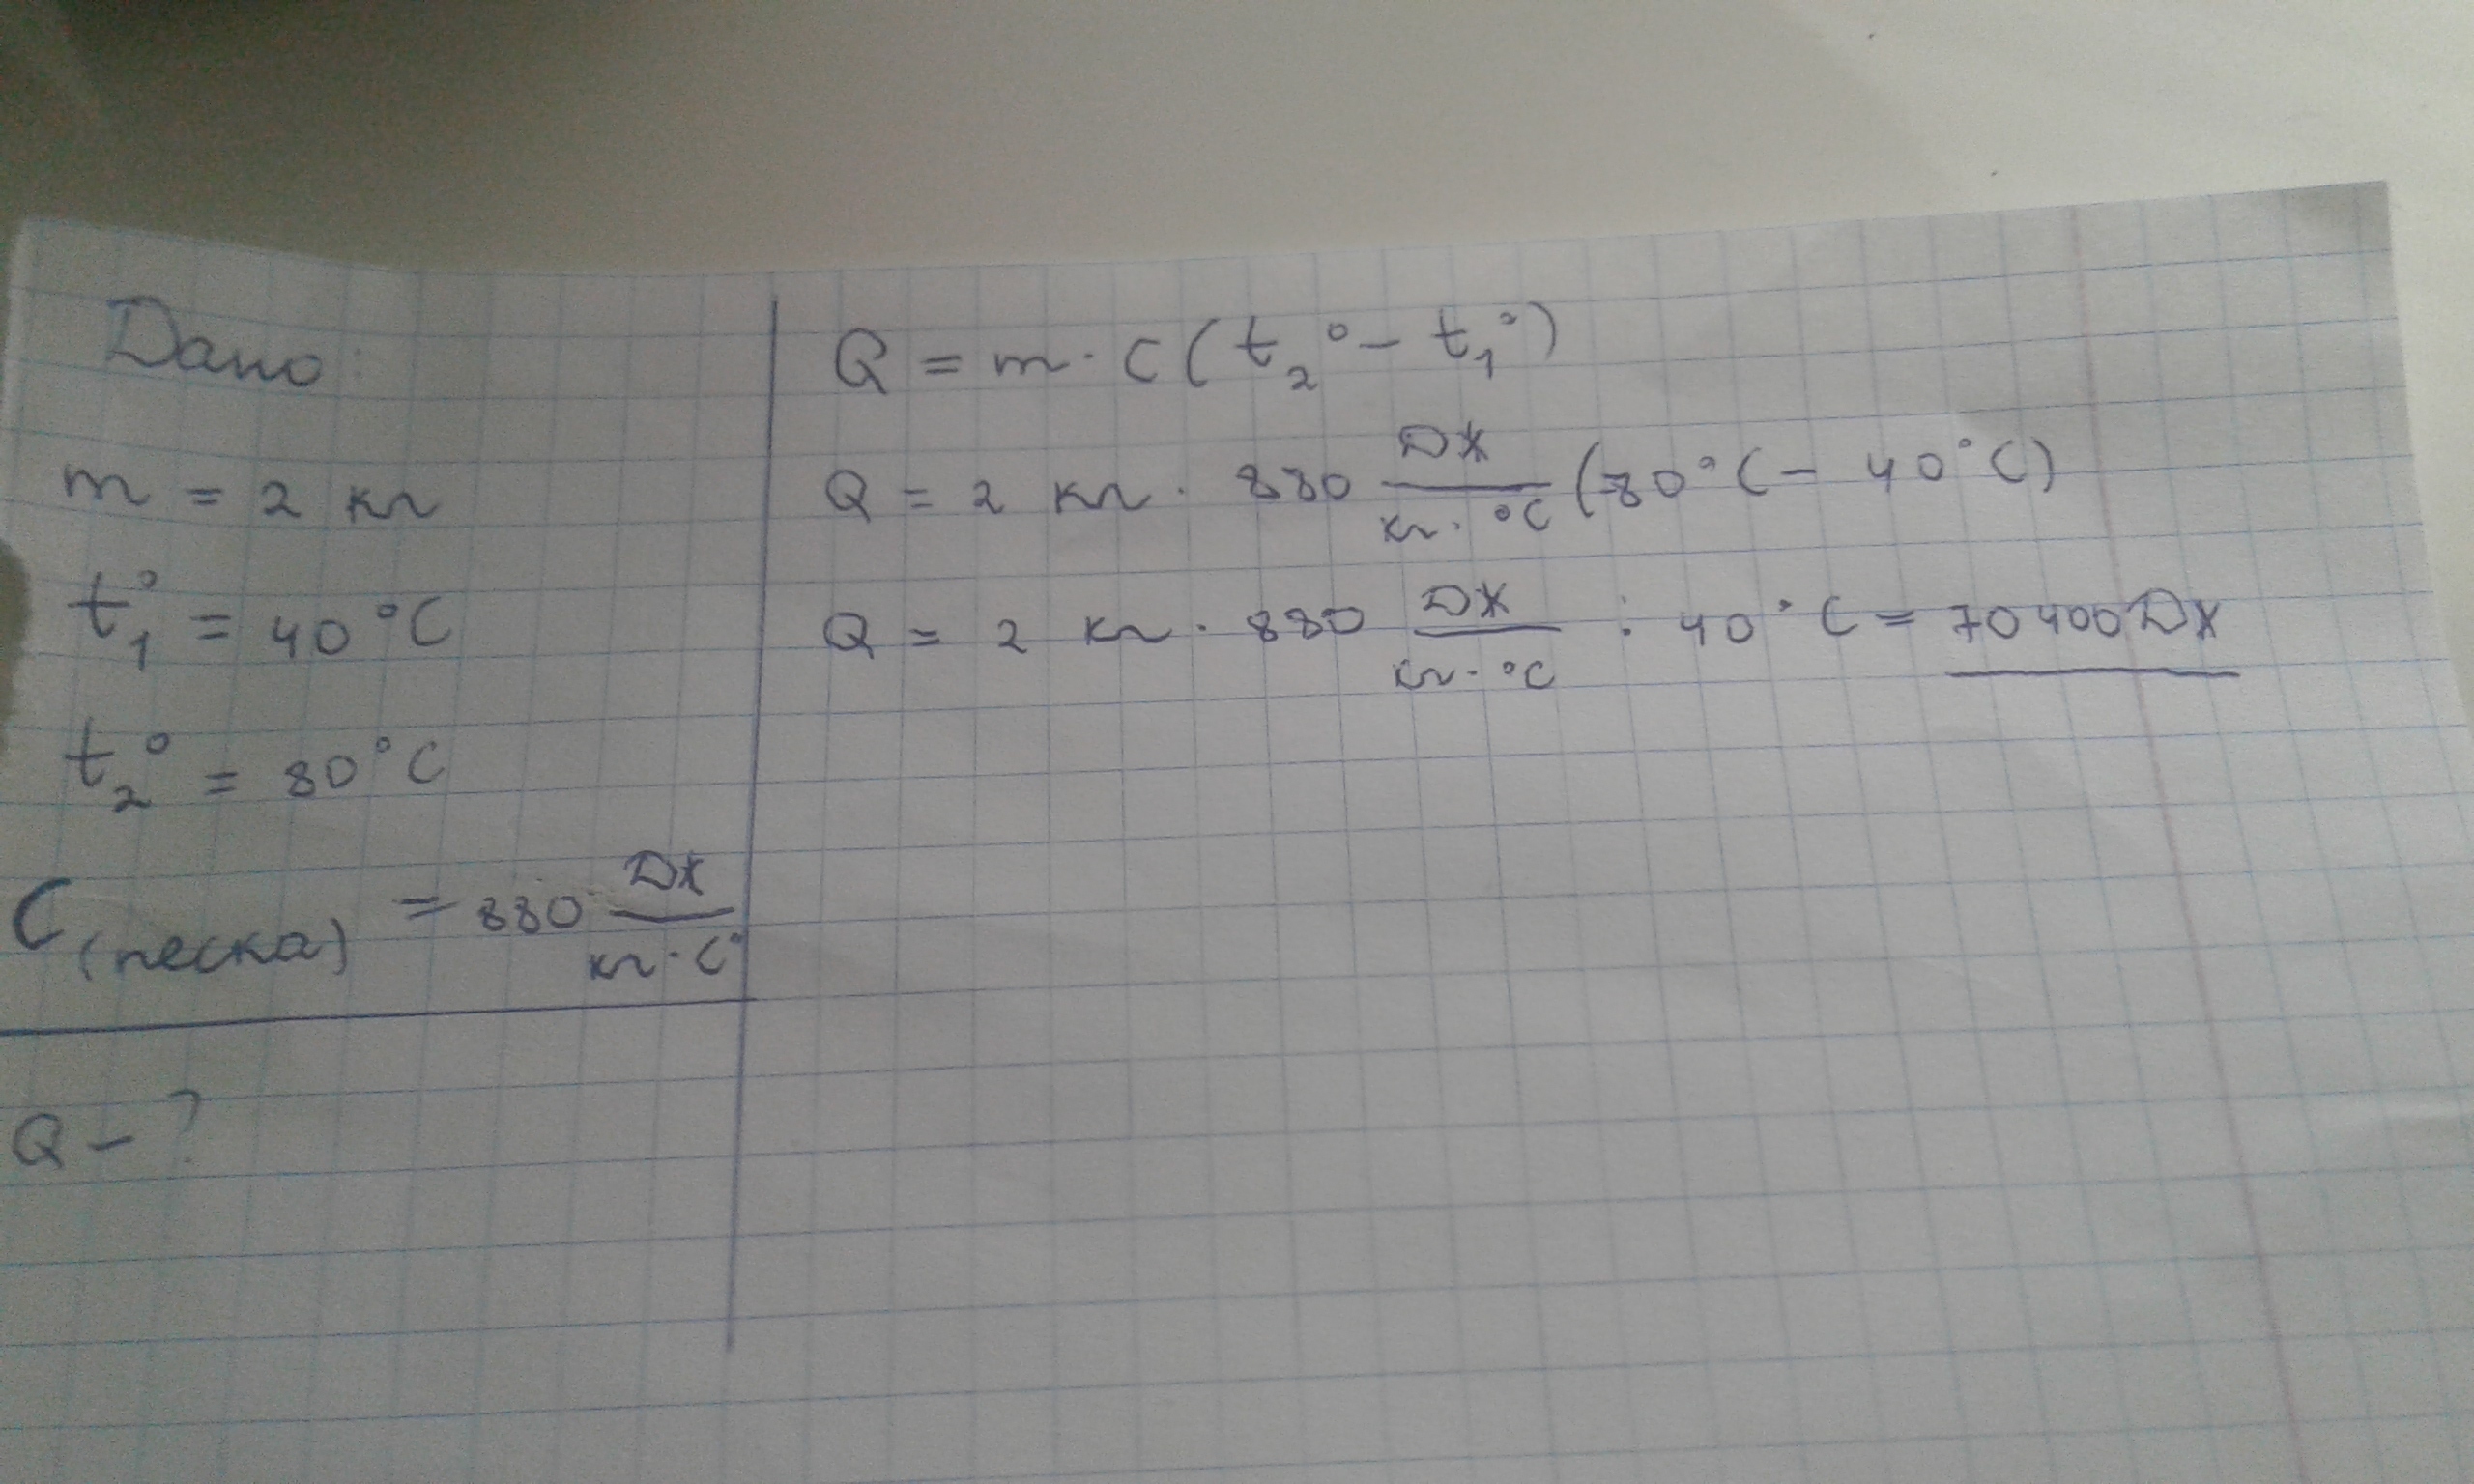 Дано:
m = 2 кг
t₁° = 40 °C
t₂° = 80 °C
C(песка) = 880 Дж/кг·C°
Q – ?
Q = m · C ( t₂° – t₁° )
Q = 2 кг · 880 Дж/кг·°C (80°C – 40°C)
Q = 2 кг · 880 Дж/кг·°C : 40°C = 70400 Дж